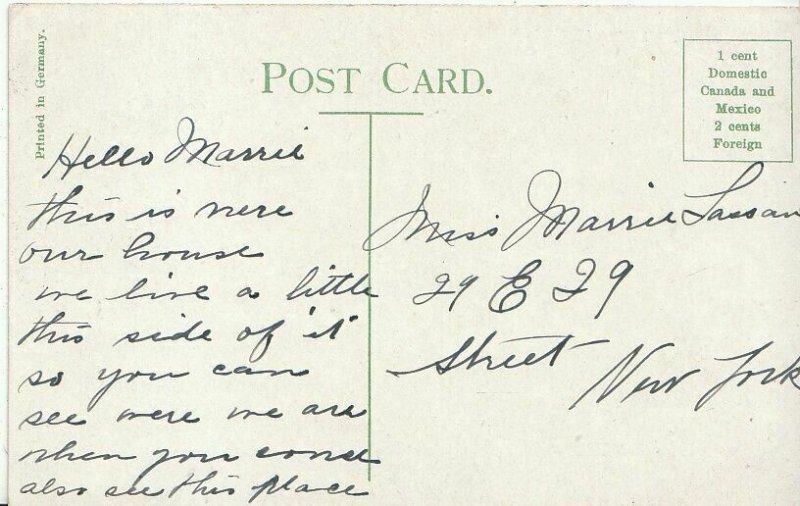 Printed in Germany.
POST CARD.
1 cent
Domestic
Canada and
Mexico
2 cents
Foreign
Hello Marrie
this is nere
our house
we live a little
this side of "it"
so you can
see were we are
when you come
also see this place
Miss Marrie Lassan
29 E 29
Street New York